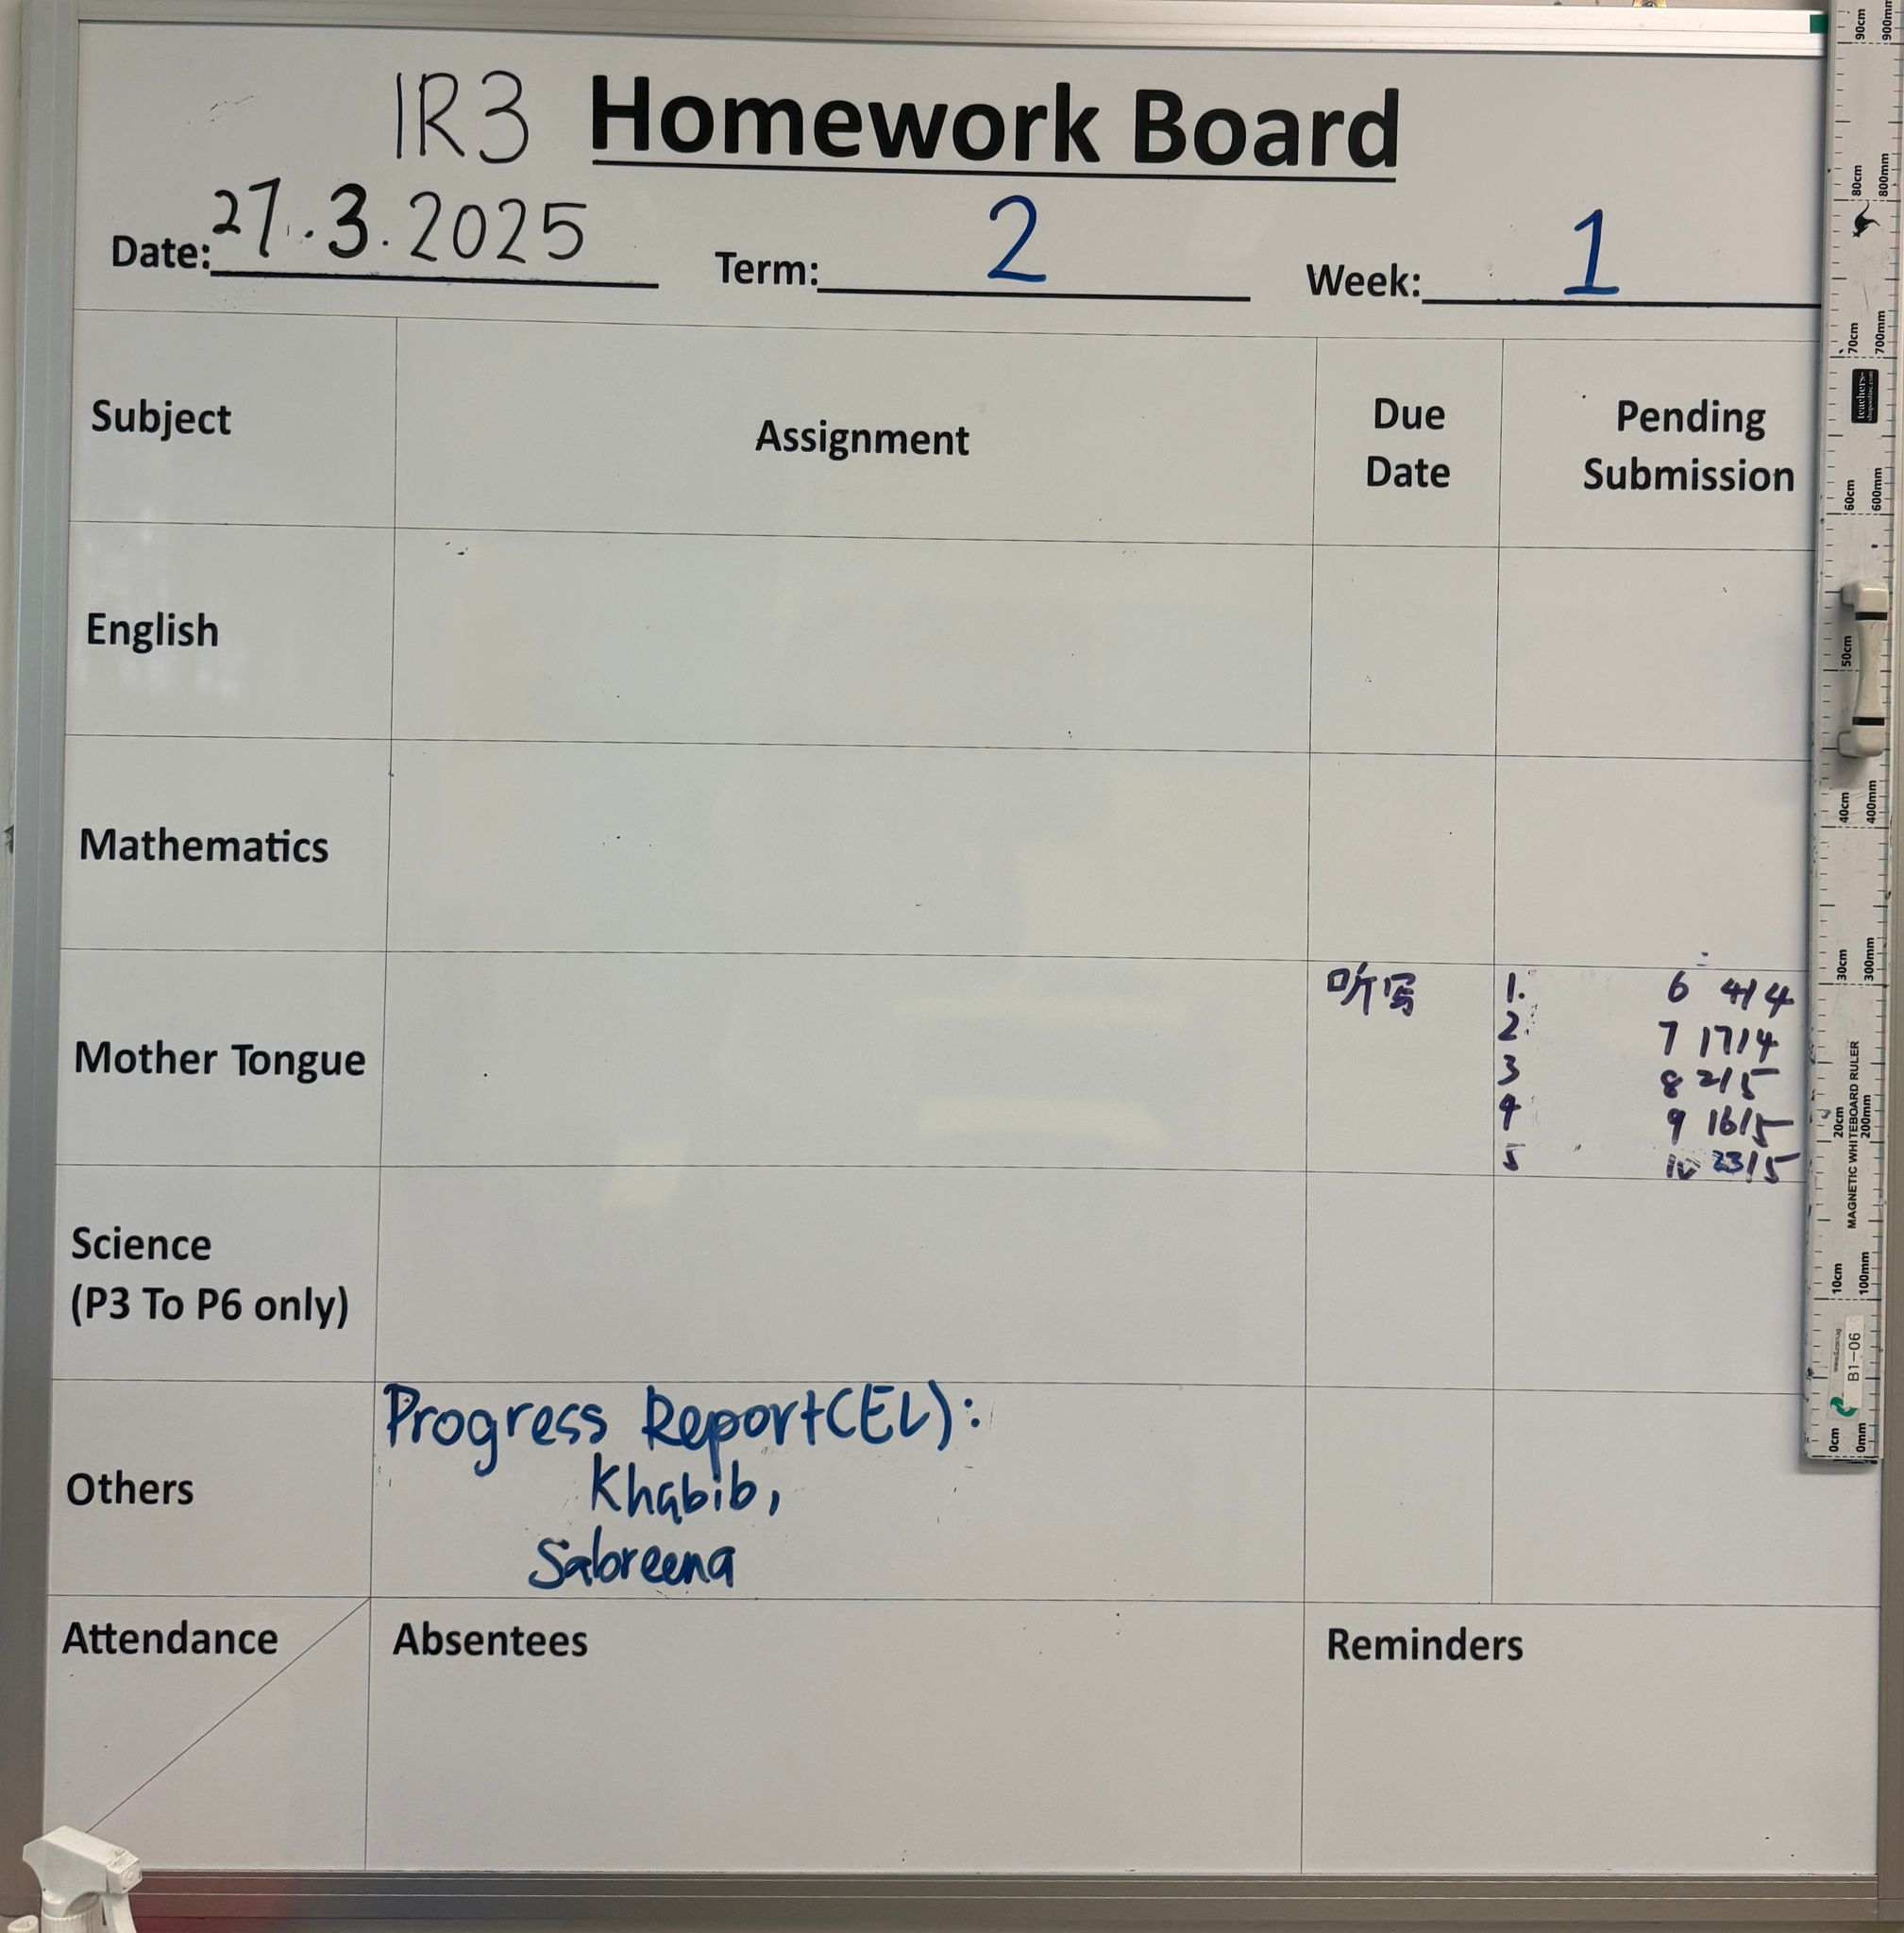 1R3 Homework Board
Date: 27.3.2025 Term: 2 Week: 1
Subject Assignment Due Date Pending Submission
English
Mathematics
Mother Tongue
听写
1. 6 4/4
2. 7 17/4
3 8 2/5
4 9 16/5
5 10 23/5
Science
(P3 To P6 only)
Others
Progress Report(EL):
Khabib,
Sabreena
Attendance Absentees Reminders
90cm 900mm
80cm 800mm
70cm 700mm
teachers-
60cm 600mm
50cm
40cm 400mm
30cm 300mm
20cm 200mm
MAGNETIC WHITEBOARD RULER
10cm 100mm
B1-06
0cm 0mm